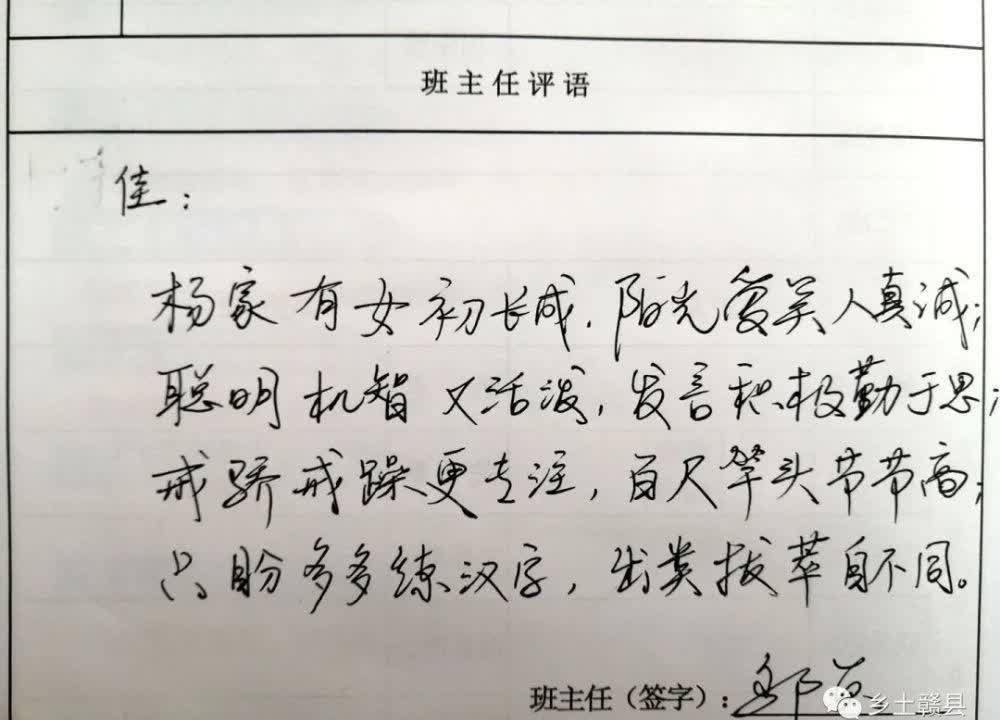 班主任评语
佳：
杨家有女初长成，阳光爱笑人真诚；
聪明机智又活泼，发言积极勤于思；
戒骄戒躁更专注，百尺竿头节节高；
只盼多多练汉字，出类拔萃自不同。
班主任（签字）：邹
乡土赣县